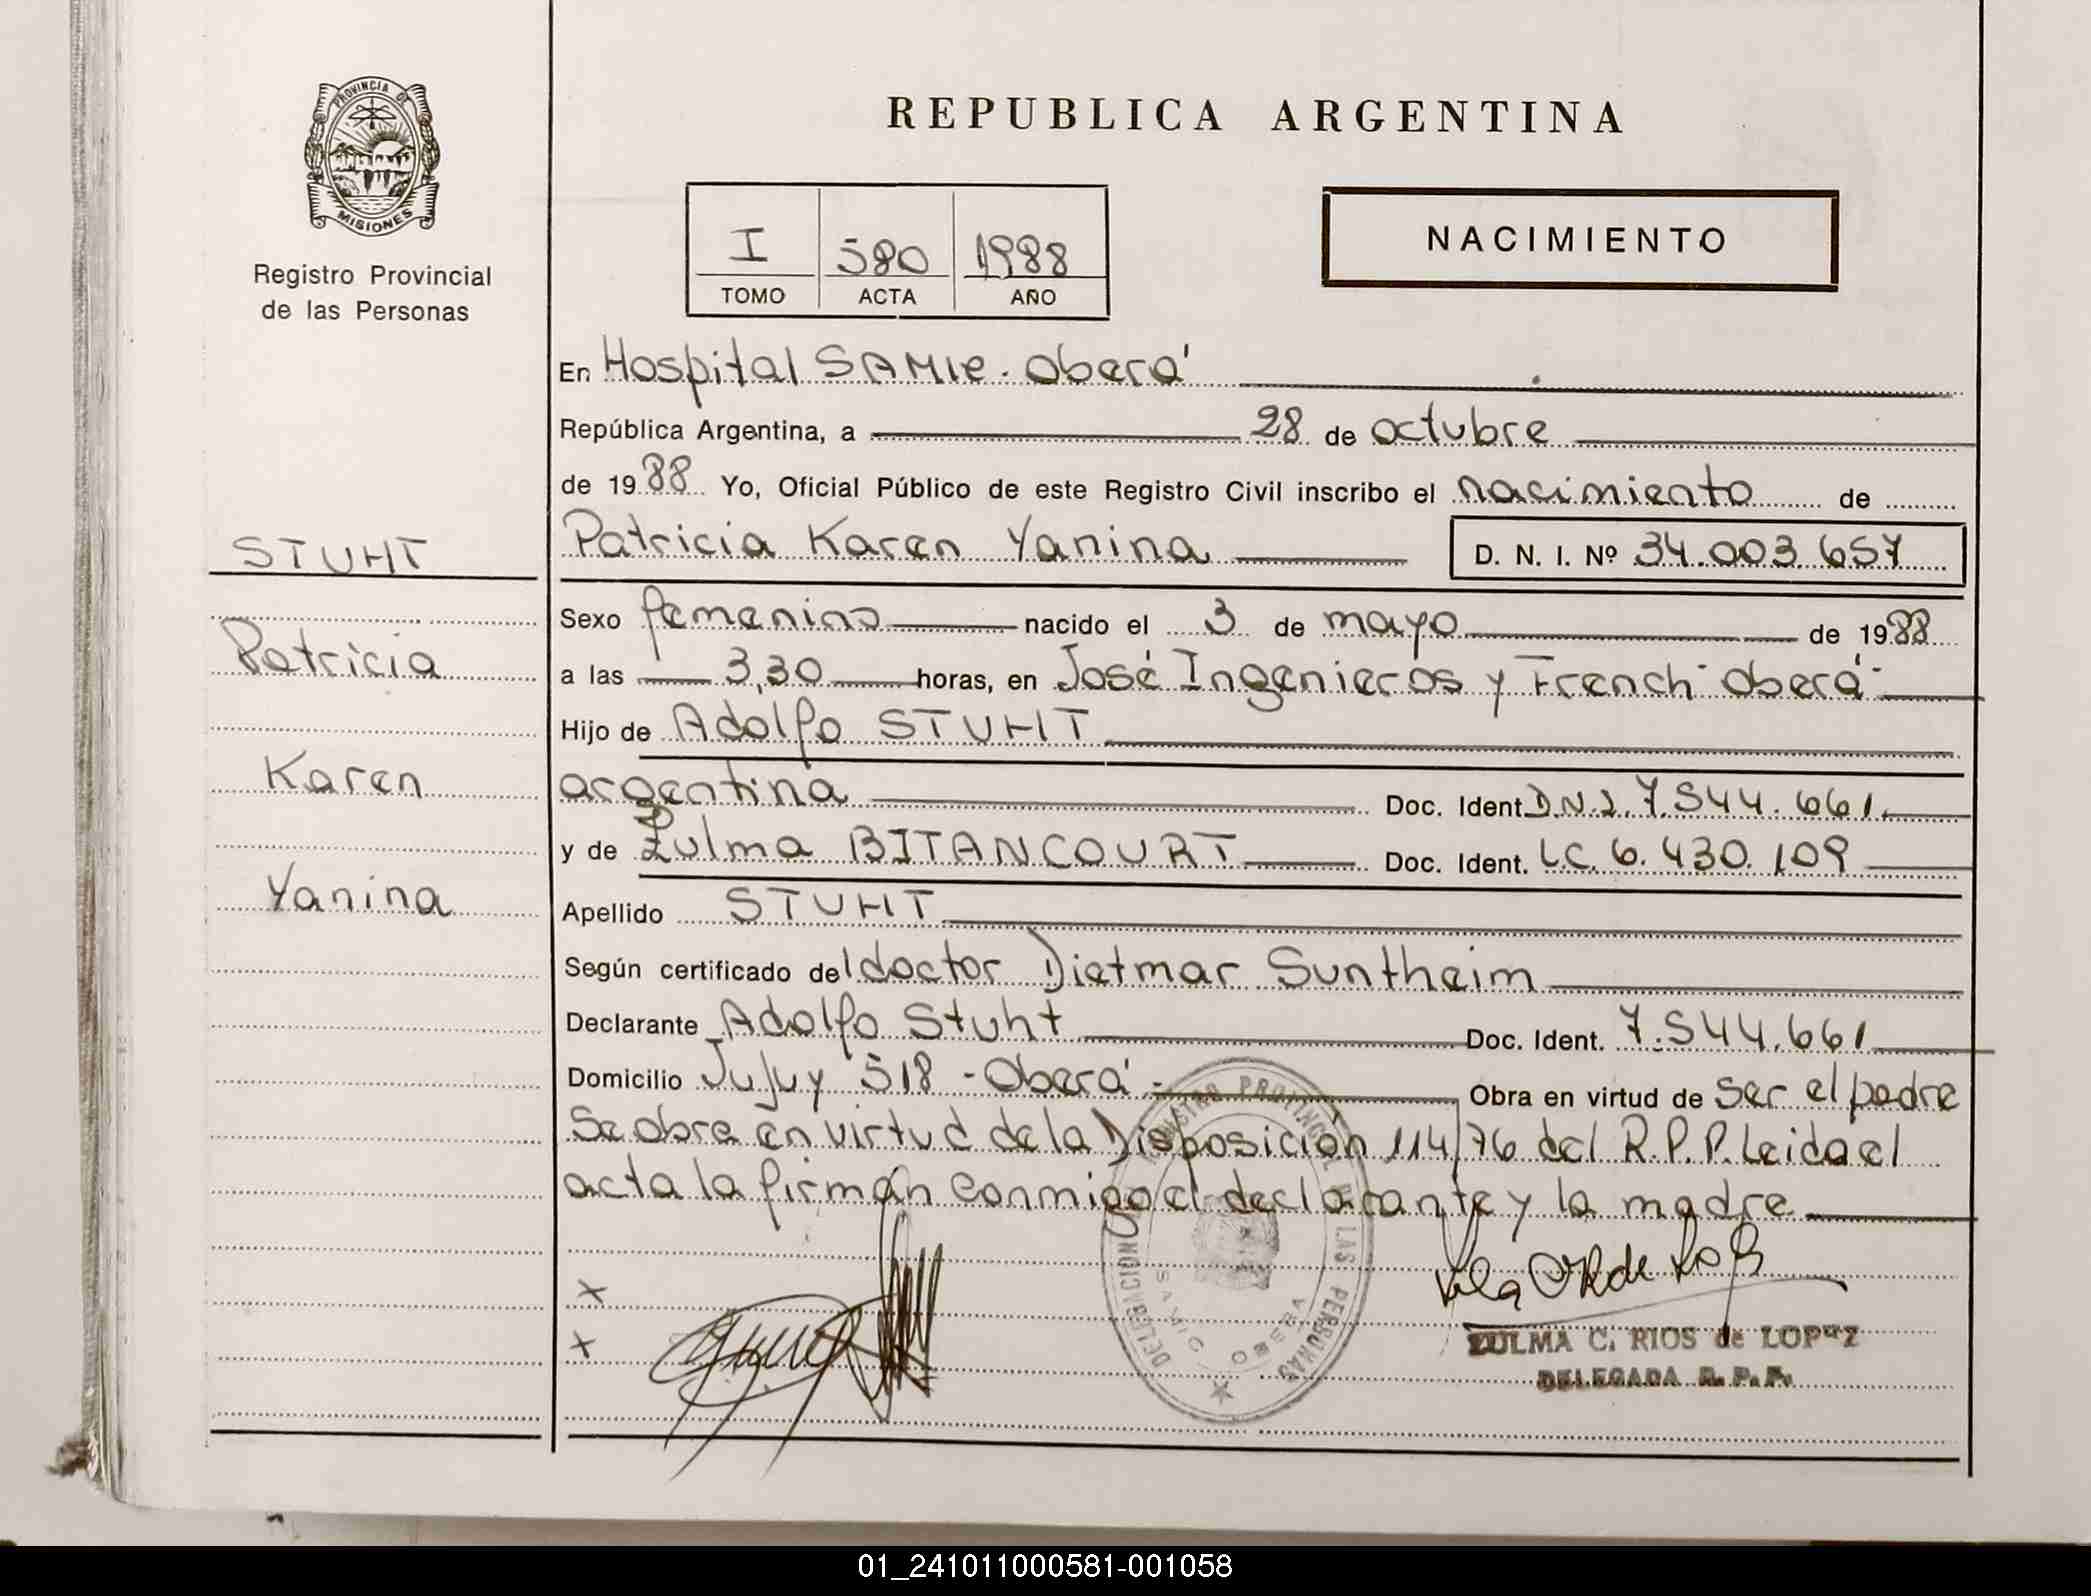 PROVINCIA DE
MISIONES
Registro Provincial
de las Personas
STUHT
Patricia
Karen
Yanina
REPUBLICA ARGENTINA
I 580 1988
TOMO ACTA AÑO
NACIMIENTO
En Hospital SAMIC. Oberá
República Argentina, a 28 de octubre
de 1988 Yo, Oficial Público de este Registro Civil inscribo el nacimiento de
Patricia Karen Yanina D. N. I. Nº 34.003.657
Sexo femenino nacido el 3 de mayo de 1988
a las 3,30 horas, en José Ingenieros y French - Oberá -
Hijo de Adolfo STUHT
argentina Doc. Ident. D.N.I. 7.544.661.
y de Zulma BITANCOURT Doc. Ident. L.C. 6.430.109
Apellido STUHT
Según certificado del doctor Dietmar Suntheim
Declarante Adolfo Stuht Doc. Ident. 7.544.661
Domicilio Jujuy 518 - Oberá - Obra en virtud de ser el padre
Se obra en virtud de la Disposición 114/76 del R.P.P. Leida el
acta la firmán conmigo el declarante y la madre
X
X
DELEGACION REGISTRO PROVINCIAL DE LAS PERSONAS
SAMIC OBERA
ZULMA C. RIOS de LOPEZ
DELEGADA R.P.P.
01_241011000581-001058